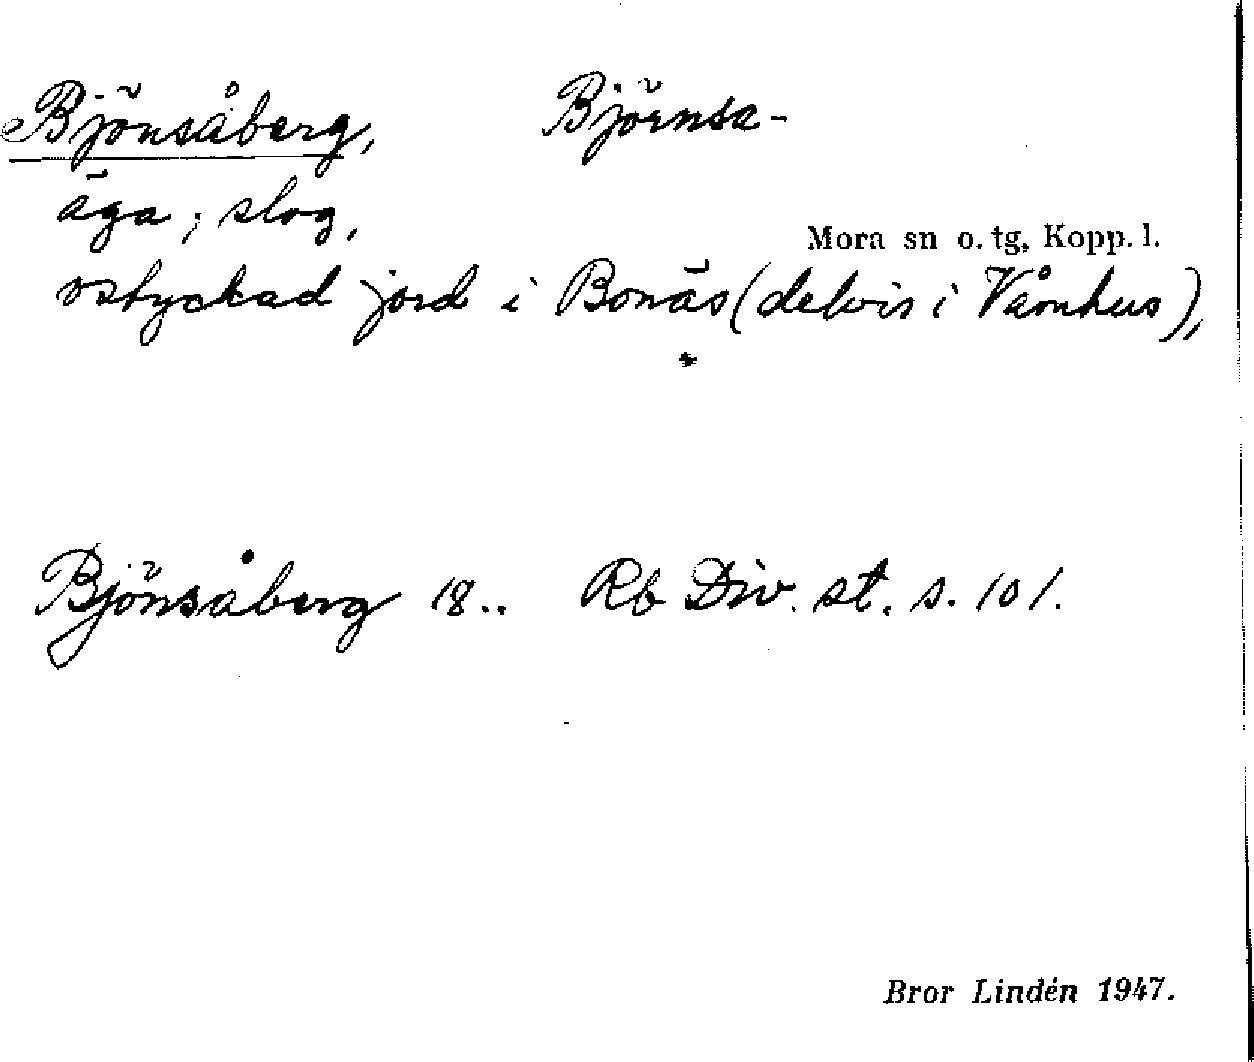 Bjönsåberg, Björnsa-
äga; slog,
Mora sn o. tg, Kopp. l.
ostyckad jord i Bonäs (delvis i Våmhus),
*
Bjönsåberg 18.. Rb Div. st. s. 101.
Bror Lindén 1947.